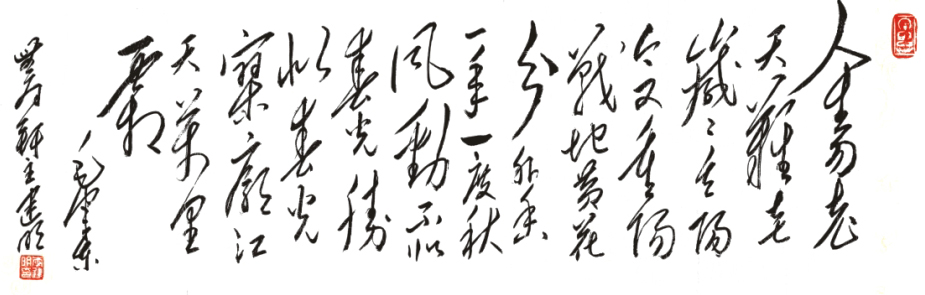 人生易老
天難老
歲々重陽
今又重陽
戰地黃花
分外香
一年一度秋
风勁不似
春光勝
似春光
寥廓江
天萬里
霜
毛澤東
軒主建明